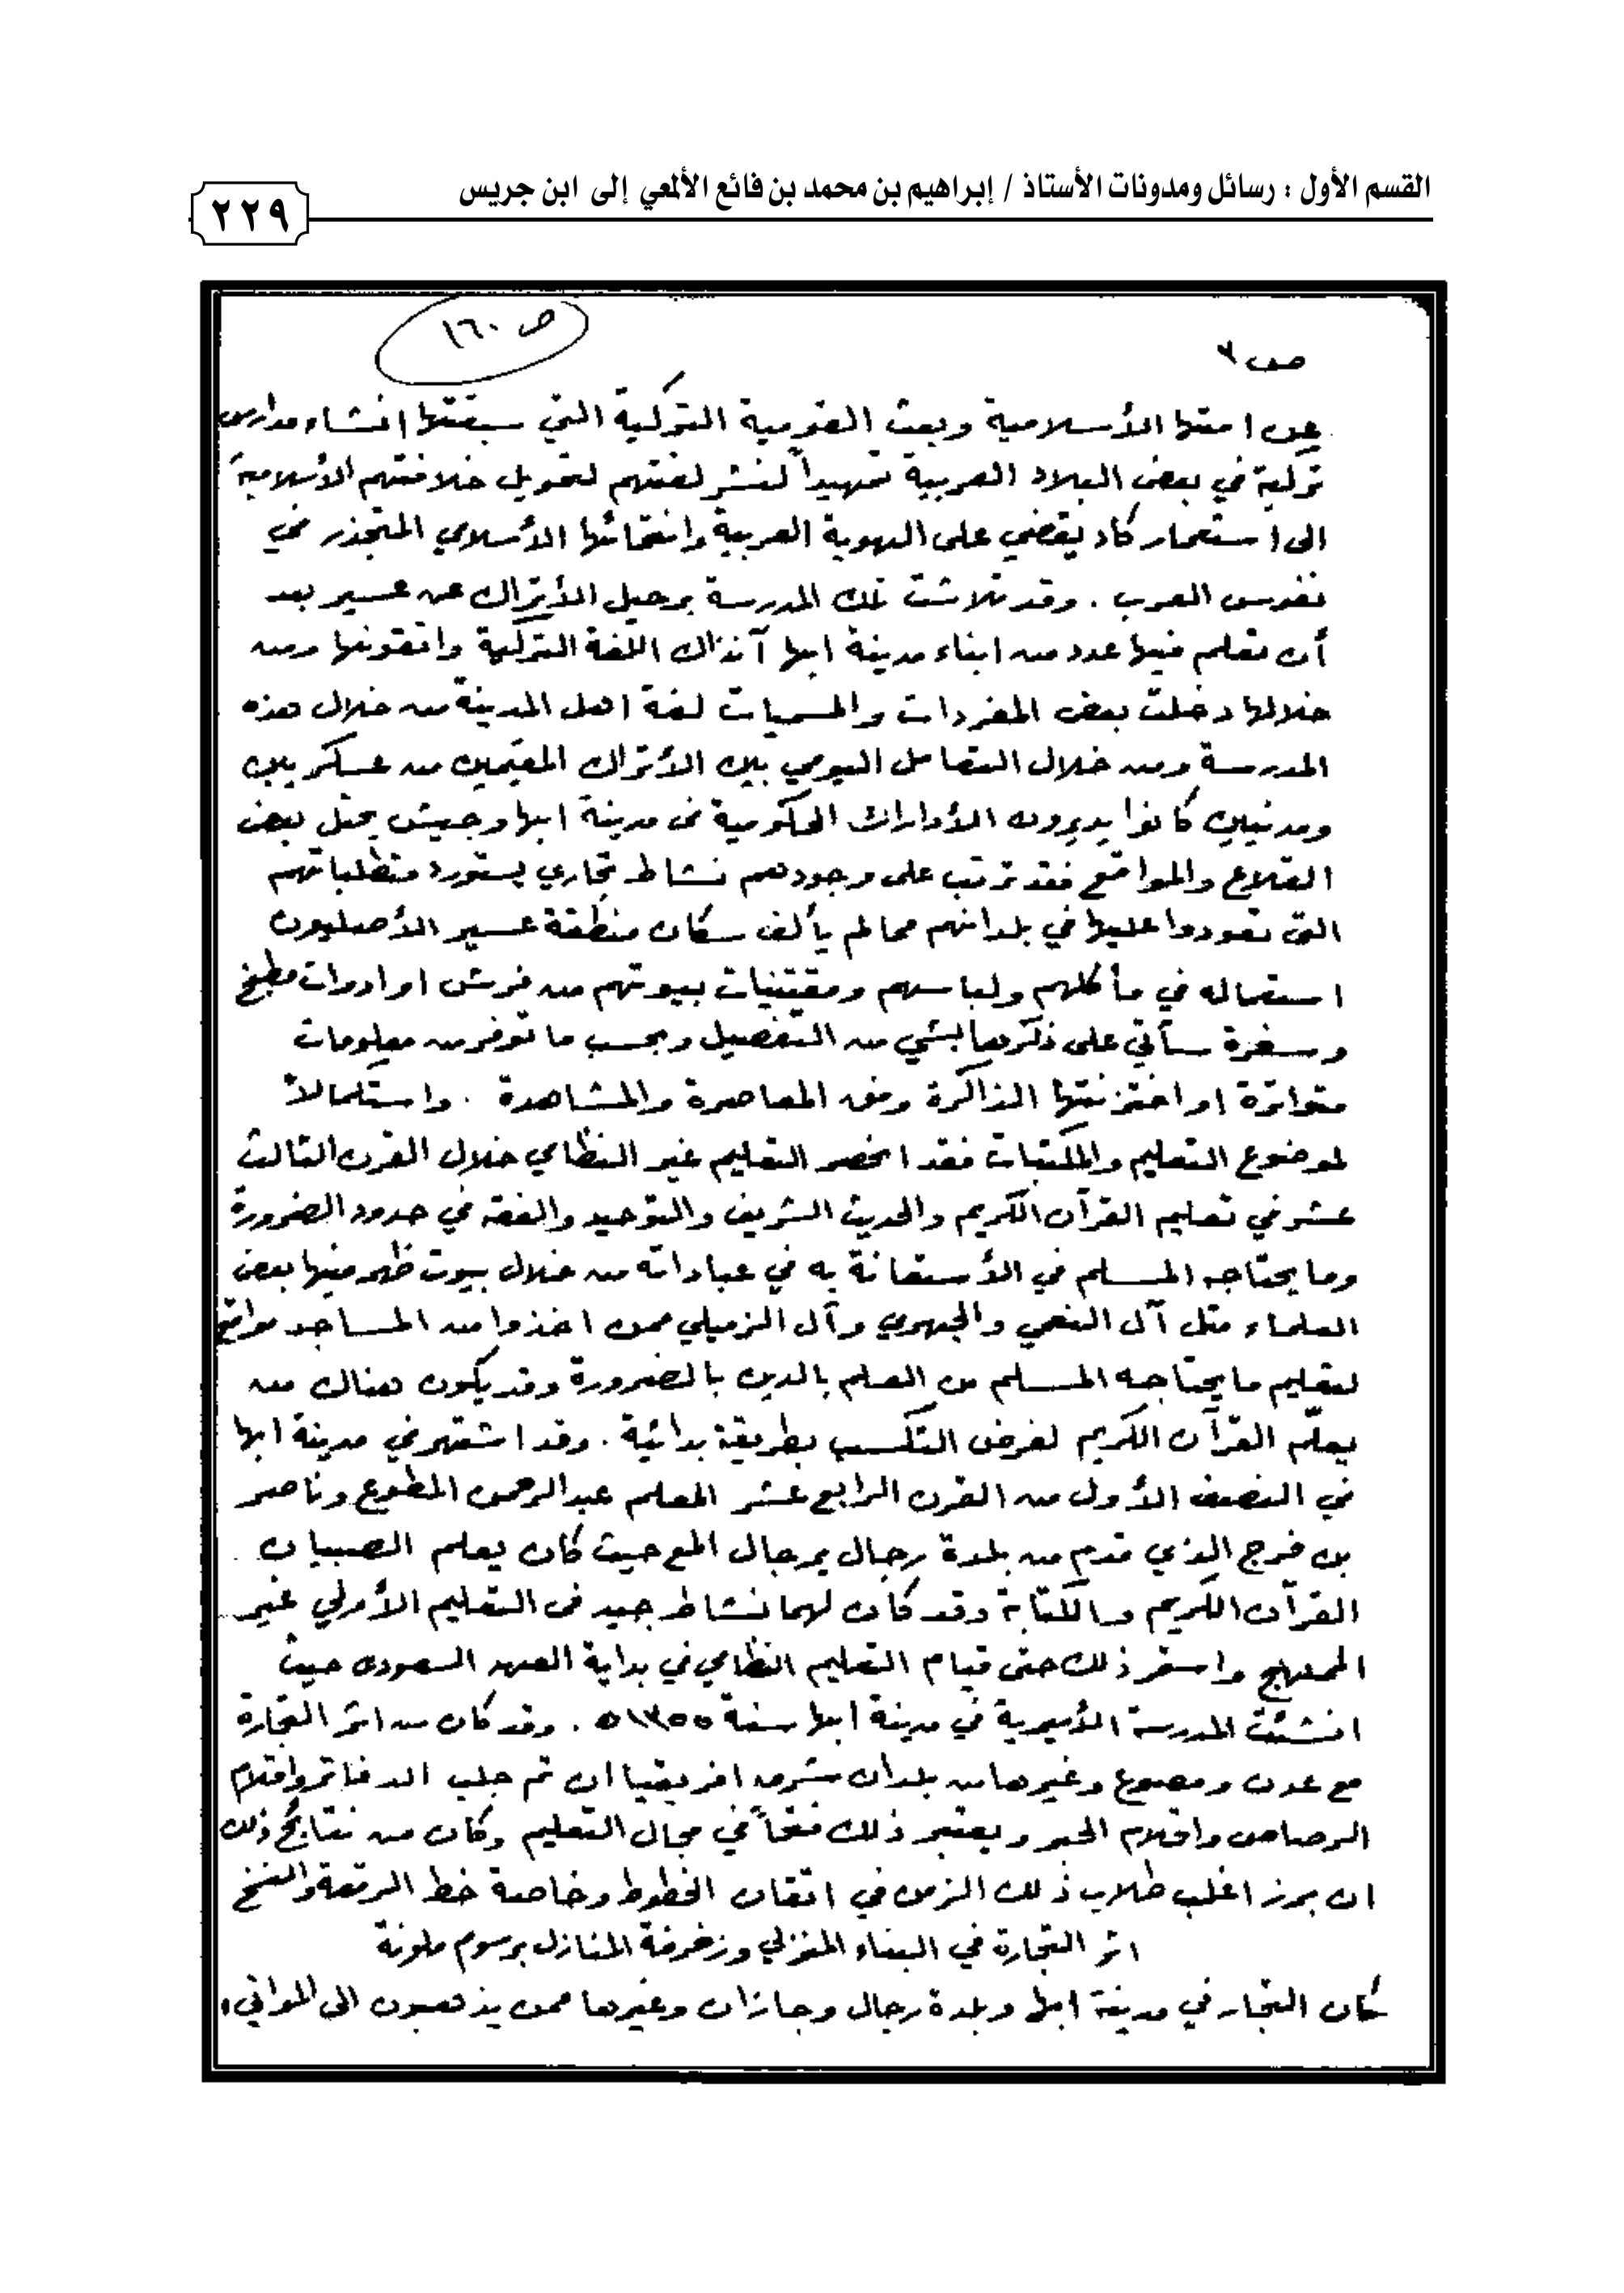 القسم الأول : رسائل ومدونات الأستاذ / إبراهيم بن محمد بن فائع الألمعي إلى ابن جريس
٢٢٩
ص ١٦٠
ص
عن امتها الأسلامية وبعث القومية التركية التي سبقتها انشاء مدارس
تركية في بعض البلاد العربية تمهيداً لنشر لغتهم لتحويل خلافتهم الأسلامية
الى استعمار كاد يقضي على الهوية العربية وانتمائها الأسلامي المتجذر في
نفوس العرب . وقد تلاشت تلك المدرسة برحيل الأتراك عن عسير بعد
أن تعلم فيها عدد من ابناء مدينة ابها آنذاك اللغة التركية واتقونها ومن
خلالها دخلت بعض المفردات والمسميات لغة اهل المدينة من خلال هذه
المدرسة ومن خلال التعامل اليومي بين الأتراك المقيمين من عسكريين
ومدنيين كانوا يديرون الأدارات الحكومية في مدينة ابها وجيش يحتل بعض
القلاع والمواقع فقد ترتب على وجودهم نشاط تجاري يستورد متطلباتهم
التي تعودوا عليها في بلدانهم مما لم يألف سكان منطقة عسير الأصليون
استعماله في مأكلهم ولباسهم ومقتنيات بيوتهم من فرش او ادوات مطبخ
وسفرة سآتي على ذكرها بشي من التفصيل وبحسب ما توفر من معلومات
متواترة او اختزنتها الذاكرة وفق المعاصرة والمشاهدة . واستكمالاً
لموضوع التعليم والمكتبات فقد انحصر التعليم غير النظامي خلال القرن الثالث
عشر في تعليم القرآن الكريم والحديث الشريف والتوحيد والفقه في حدود الضرورة
وما يحتاجه المسلم في الأستعانة به في عباداته من خلال بيوت ظهر فيها بعض
العلماء مثل آل النعمي والجهوي وآل الزميلي ممن اخذوا من المساجد مواقع
لتعليم ما يحتاجه المسلم من العلم بالدين بالضرورة وقد يكون هناك من
يعلّم القرآن الكريم لغرض التكسب بطريقة بدائية . وقد اشتهر في مدينة ابها
في النصف الأول من القرن الرابع عشر المعلم عبدالرحمن المطوع وناصر
بن فرج الذي قدم من بلدة رجال برجال المع حيث كان يعلم الصبيان
القرآن الكريم والكتابة وقد كان لهما نشاط جيد في التعليم الأولي غير
الممنهج واستمر ذلك حتى قيام التعليم النظامي في بداية العهد السعودي حيث
انشئت المدرسة الأميرية في مدينة ابها سنة ١٣٥٥هـ . وقد كان من اثر التجارة
مع عدن ومصوع وغيرها من بلدان شرق افريقيا ان تم جلب الدفاتر واقلام
الرصاص واقلام الحبر ويعتبر ذلك فتحاً في مجال التعليم وكان من نتائج ذلك
ان برز اغلب طلاب ذلك الزمن في اتقان الخطوط وخاصة خط الرقعة والنسخ
اثر التجارة في البناء المنزلي وزخرفة المنازل برسوم ملونة
كان التجار في مدينة ابها وبلدة رجال وجازان وغيرها ممن يذهبون الى الموانيء